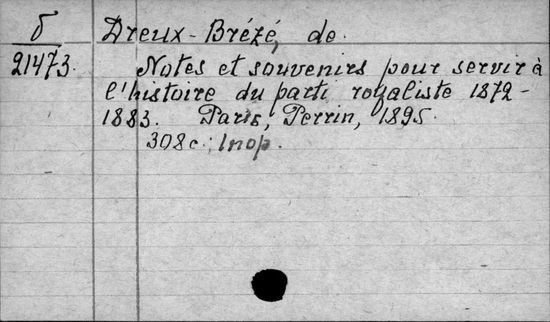 б Dreux-Brézé, de.
21473. Notes et souvenirs pour servir à
l'histoire du parti royaliste 1872-
1883. Paris, Perrin, 1895.
308c.; 1пор.